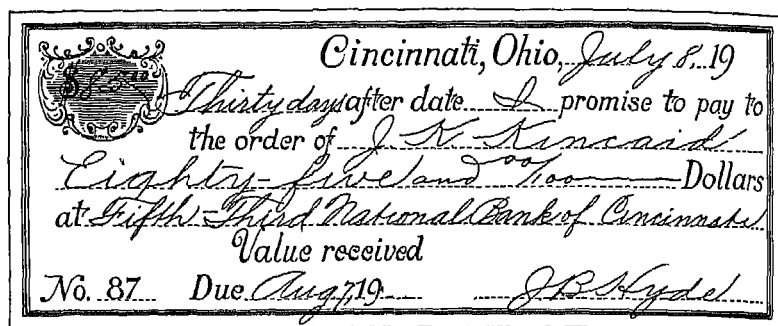 Cincinnati, Ohio, July 8, 19
$85.00
Thirty days after date I promise to pay to
the order of J. K. Kincaid
Eighty-five and 00/100 Dollars
at Fifth-Third National Bank of Cincinnati
Value received
No. 87 Due Aug 7, 19 J B Hyde